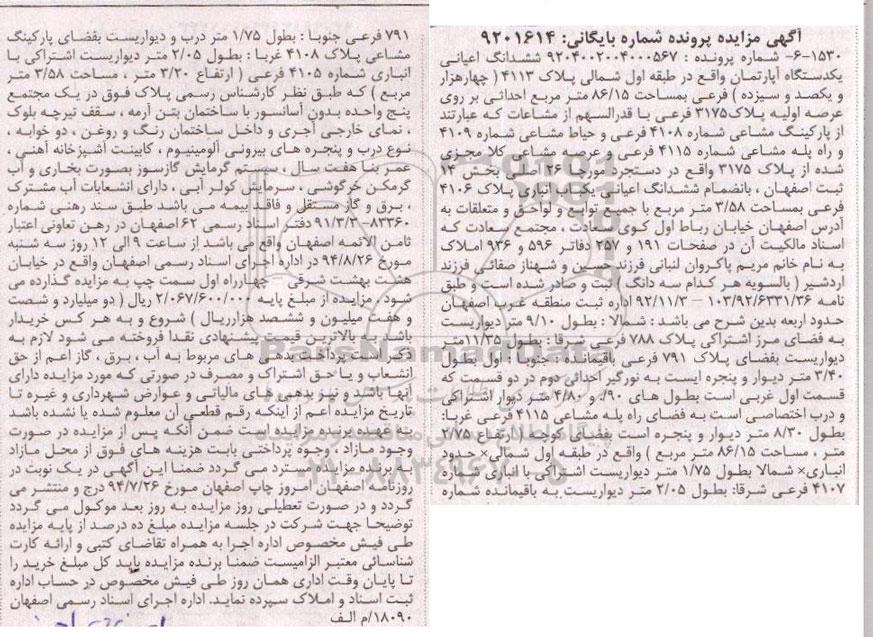 آگهی مزایده پرونده شماره بایگانی: ۹۲۰۱۶۱۴
۱۵۳۰-۶- شماره پرونده : ۹۲۰۴۰۰۲۰۰۴۰۰۰۵۶۷ ششدانگ اعیانی
یکدستگاه آپارتمان واقع در طبقه اول شمالی پلاک ۴۱۱۳ ( چهارهزار
و یکصد و سیزده ) فرعی بمساحت ۸۶/۱۵ متر مربع احداثی بر روی
عرصه اولیه پلاک ۳۱۷۵ فرعی با قدرالسهم از مشاعات که عبارتند
از پارکینگ مشاعی شماره ۴۱۰۸ فرعی و حیاط مشاعی شماره ۴۱۰۹
و راه پله مشاعی شماره ۴۱۱۵ فرعی و عرصه مشاعی کلا مجزی
شده از پلاک ۳۱۷۵ واقع در دستجرد مورجا ۳۶ اصلی بخش ۱۴
ثبت اصفهان ، بانضمام ششدانگ اعیانی یکباب انباری پلاک ۴۱۰۶
فرعی بمساحت ۳/۵۸ متر مربع با جمیع توابع و لواحق و متعلقات به
آدرس اصفهان خیابان رباط اول کوی سعادت ، مجتمع سعادت که
اسناد مالکیت آن در صفحات ۱۹۱ و ۲۵۷ دفاتر ۵۹۶ و ۹۳۶ املاک
به نام خانم مریم پاکروان لنبانی فرزند حسین و شهناز صفائی فرزند
اردشیر ( بالسویه هر کدام سه دانگ ) ثبت و صادر شده است و طبق
نامه ۱۰۳/۹۲/۶۳۳۱/۳۶ – ۹۲/۱۱/۳ اداره ثبت منطقه غرب اصفهان
حدود اربعه بدین شرح می باشد : شمالا : بطول ۹/۱۰ متر دیواریست
به فضای مرز اشتراکی پلاک ۷۸۸ فرعی شرقا : بطول ۱۱/۳۵متر
دیواریست بفضای پلاک ۷۹۱ فرعی باقیمانده جنوبا : اول بطول
۳/۴۰ متر دیوار و پنجره ایست به نورگیر احداثی دوم در دو قسمت که
قسمت اول غربی است بطول های ۹۰/. و ۴/۸۰ متر دیوار اشتراکی
و درب اختصاصی است به فضای راه پله مشاعی ۴۱۱۵ فرعی غربا:
بطول ۸/۳۰ متر دیوار و پنجره است بفضای کوچه ( ارتفاع ۲/۷۵
متر ، مساحت ۸۶/۱۵ متر مربع ) واقع در طبقه اول شمالی× حدود
انباری× شمالا بطول ۱/۷۵ متر دیواریست اشتراکی با انباری شماره
۴۱۰۷ فرعی شرقا: بطول ۲/۰۵ متر دیواریست به باقیمانده شماره
۷۹۱ فرعی جنوبا : بطول ۱/۷۵ متر درب و دیواریست بفضای پارکینگ
مشاعی پلاک ۴۱۰۸ غربا : بطول ۲/۰۵ متر دیواریست اشتراکی با
انباری شماره ۴۱۰۵ فرعی ( ارتفاع ۳/۲۰ متر ، مساحت ۳/۵۸ متر
مربع ) که طبق نظر کارشناس رسمی پلاک فوق در یک مجتمع
پنج واحده بدون آسانسور با ساختمان بتن آرمه ، سقف تیرچه بلوک
، نمای خارجی آجری و داخل ساختمان رنگ و روغن ، دو خوابه ،
نوع درب و پنجره های بیرونی آلومینیوم ، کابینت آشپزخانه آهنی ،
عمر بنا هفت سال ، سیستم گرمایش گازسوز بصورت بخاری و آب
گرمکن خرگوشی ، سرمایش کولر آبی ، دارای انشعابات آب مشترک
، برق و گاز مستقل و فاقد بیمه می باشد طبق سند رهنی شماره
۸۳۳۶۰–۹۱/۳/۳ دفتر اسناد رسمی ۶۲ اصفهان در رهن تعاونی اعتبار
ثامن الائمه اصفهان واقع می باشد از ساعت ۹ الی ۱۲ روز سه شنبه
مورخ ۹۴/۸/۲۶ در اداره اجرای اسناد رسمی اصفهان واقع در خیابان
هشت بهشت شرقی – چهارراه اول سمت چپ به مزایده گذارده می
شود ، مزایده از مبلغ پایه ۲/۰۶۷/۶۰۰/۰۰۰ ریال ( دو میلیارد و شصت
و هفت میلیون و ششصد هزارریال ) شروع و به هر کس خریدار
باشد به بالاترین قیمت پیشنهادی نقدا فروخته می شود لازم به
ذکر است پرداخت بدهی های مربوط به آب ، برق ، گاز اعم از حق
انشعاب و یا حق اشتراک و مصرف در صورتی که مورد مزایده دارای
آنها باشد و نیز بدهی های مالیاتی و عوارض شهرداری و غیره تا
تاریخ مزایده اعم از اینکه رقم قطعی آن معلوم شده یا نشده باشد
به عهده برنده مزایده است ضمن آنکه پس از مزایده در صورت
وجود مازاد ، وجوه پرداختی بابت هزینه های فوق از محل مازاد
به برنده مزایده مسترد می گردد ضمنا این آگهی در یک نوبت در
روزنامه اصفهان امروز چاپ اصفهان مورخ ۹۴/۷/۲۶ درج و منتشر می
گردد و در صورت تعطیلی روز مزایده به روز بعد موکول می گردد
توضیحا جهت شرکت در جلسه مزایده مبلغ ده درصد از پایه مزایده
طی فیش مخصوص اداره اجرا به همراه تقاضای کتبی و ارائه کارت
شناسائی معتبر الزامیست ضمنا برنده مزایده باید کل مبلغ خرید را
تا پایان وقت اداری همان روز طی فیش مخصوص در حساب اداره
ثبت اسناد و املاک سپرده نماید. اداره اجرای اسناد رسمی اصفهان
۱۸۰۹۰/م الف